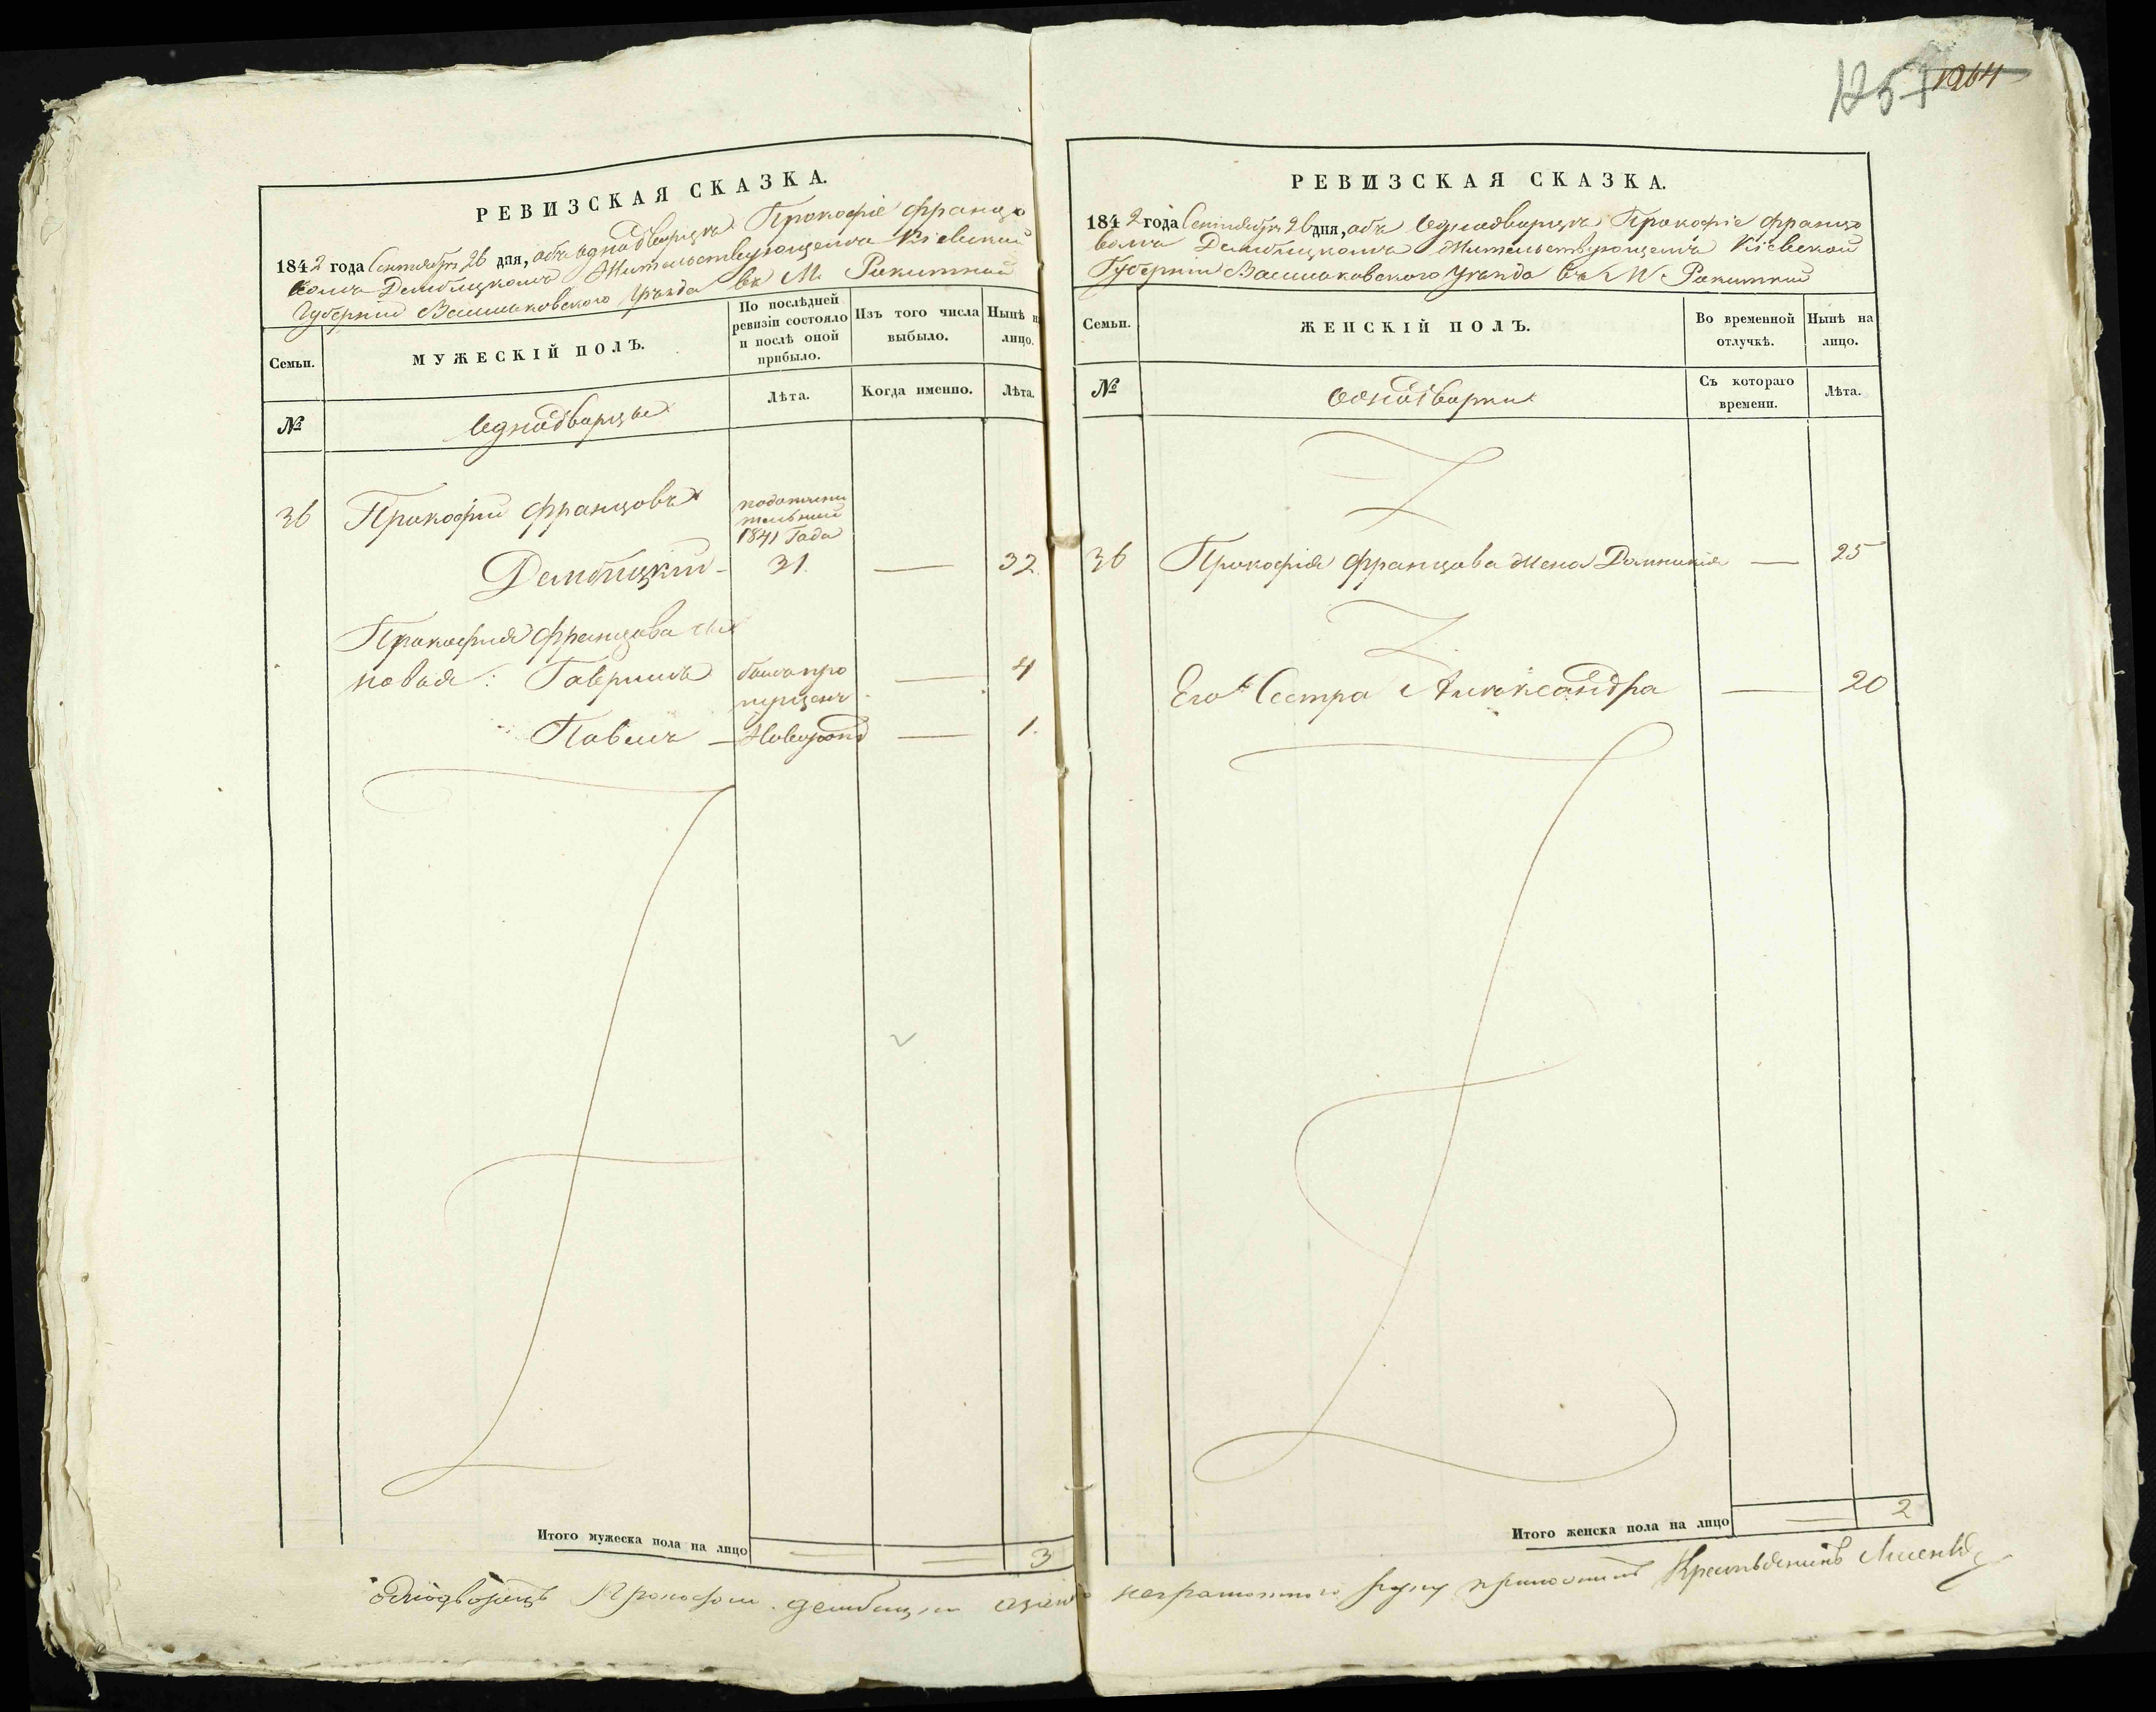 1257 1264
РЕВИЗСКАЯ СКАЗКА.
1842 года Сентября 26 дня, объ однодворцѣ Прокофіе Францо
вомъ Дембицкомъ Жительствующемъ Кіевской
Губерніи Васильковского Уѣзда въ М. Ракитной
Семьи.
МУЖЕСКІЙ ПОЛЪ.
По послѣдней
ревизіи состояло
и послѣ оной
прибыло.
Изъ того числа
выбыло.
Нынѣ н
лицо.
№
Однодворцы
Лѣта.
Когда именно.
Лѣта.
36 Прокофій Францовъ
1841 Года
Дембицкій - 31. — 32.
Прокофія Францова сы
новья: Гавриилъ былъ про — 4
пущенъ
Павелъ — Новорожд — 1.
Итого мужеска пола на лицо — — 3
РЕВИЗСКАЯ СКАЗКА.
1842 года Сентября 26 дня, объ Однодворцѣ Прокофіе Францо
вомъ Дембицкомъ Жительствующемъ Кіевской
Губерніи Васильковского Уѣзда въ М Ракитной
Семьи.
ЖЕНСКІЙ ПОЛЪ.
Во временной
отлучкѣ.
Нынѣ на
лицо.
№
Однодворки
Съ котораго
времени.
Лѣта.
36 Прокофія Францова Жена Домникія — 25
Его Сестра Александра — 20
Итого женска пола на лицо — 2
однодворецъ Прокофи дембицки неграмотного руку приложилъ